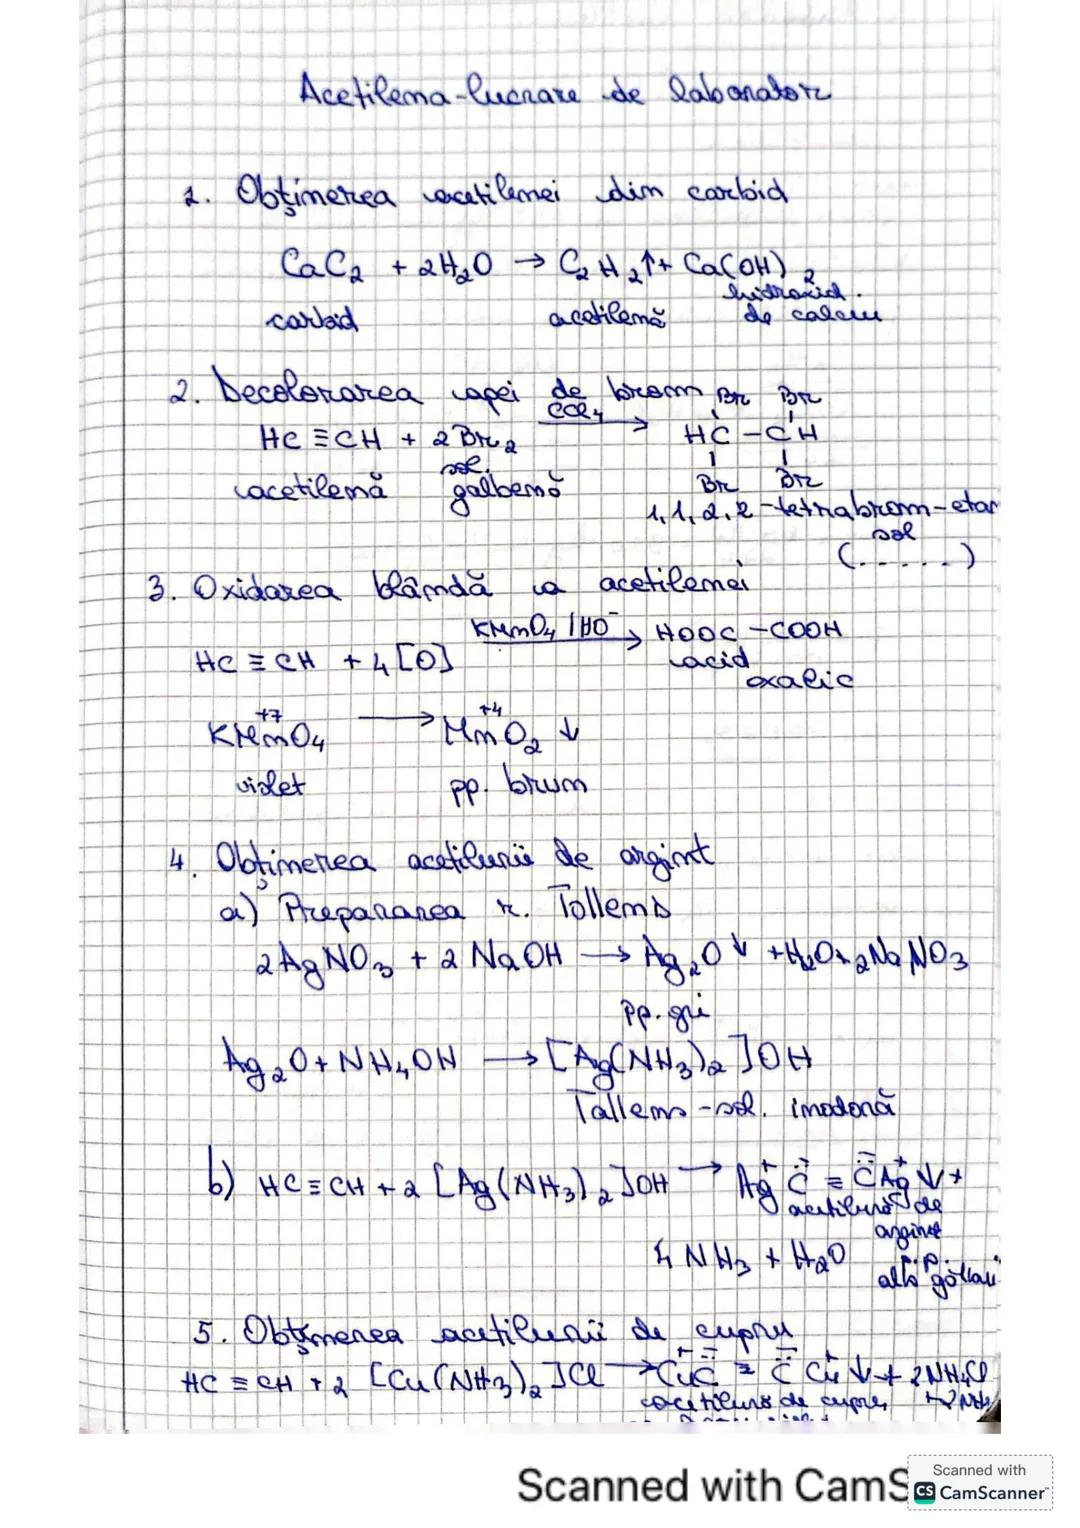 Acetilena-lucrare de laborator
1. Obținerea acetilenei din carbid
CaC₂ + 2H₂O → C₂H₂↑ + Ca(OH)₂
hidroxid
carbid acetilenă de calciu
2. Decolorarea apei de brom Br Br
CCl₄
HC≡CH + 2Br₂ → HC-CH
sol.
acetilenă galbenă Br Br
1,1,2,2-tetrabrom-etan
sol
(.....)
3. Oxidarea blândă a acetilenei
KMnO₄/HO⁻
HC≡CH + 4[O] → HOOC-COOH
acid
oxalic
+7 +4
KMnO₄ → MnO₂ ↓
violet pp. brun
4. Obținerea acetilurii de argint
a) Prepararea r. Tollens
2AgNO₃ + 2NaOH → Ag₂O↓ + H₂O + 2NaNO₃
pp. gri
Ag₂O + NH₄OH → [Ag(NH₃)₂]OH
Tollens-sol. incoloră
b) HC≡CH + 2[Ag(NH₃)₂]OH → Ag⁺ ⁻:C≡C:⁻ Ag⁺↓ +
acetilură de
argint
4NH₃ + H₂O p.p.
alb gălbui
5. Obținerea acetilurii de cupru
HC≡CH + 2[Cu(NH₃)₂]Cl → Cu⁺ ⁻:C≡C:⁻ Cu⁺↓ + 2NH₄Cl
acetilură de cupru + 2NH₃
Scanned with CamS
Scanned with
CS CamScanner